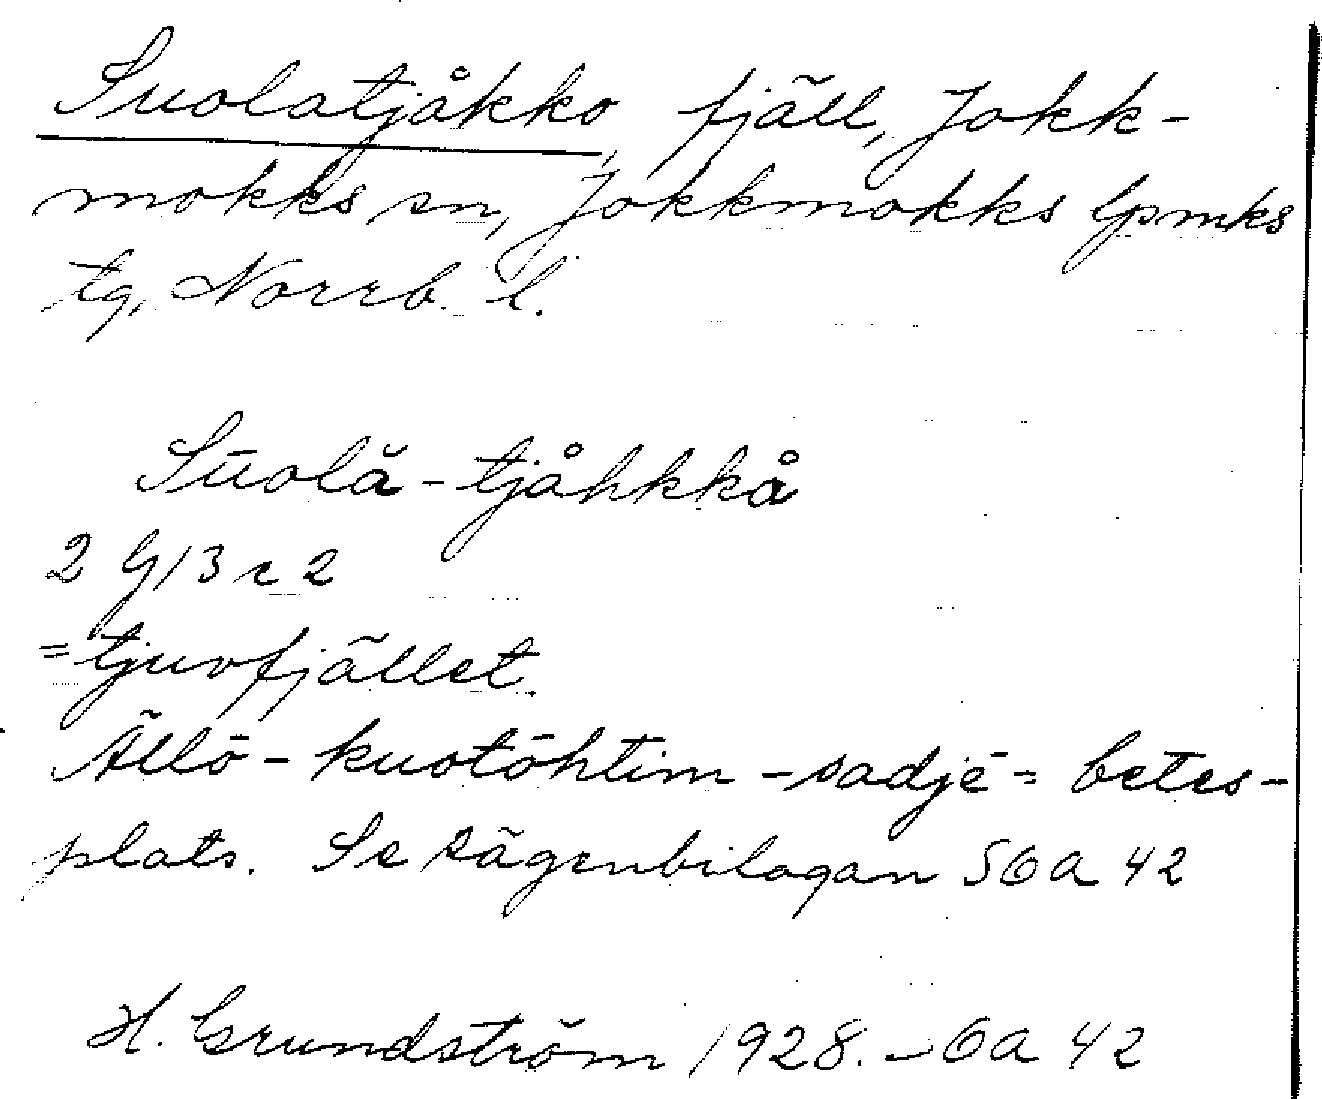 Suolatjåkko, fjäll, Jokk-
mokks sn, Jokkmokks lpmks
tg, Norrb. l.
Sūolă-tjåhkkå
2 G13c2
= tjuvfjället.
Ällō-kuotōhtim-sadjē = betes-
plats. Se sägenbilagan S6a 42
H. Grundström 1928. – 6a 42